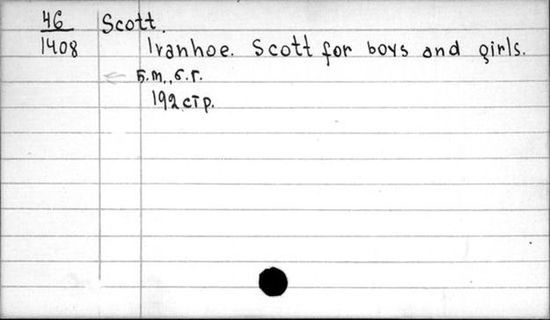 46 Scott.
1408 Ivanhoe. Scott for boys and girls.
б.м., б.г.
192 стр.